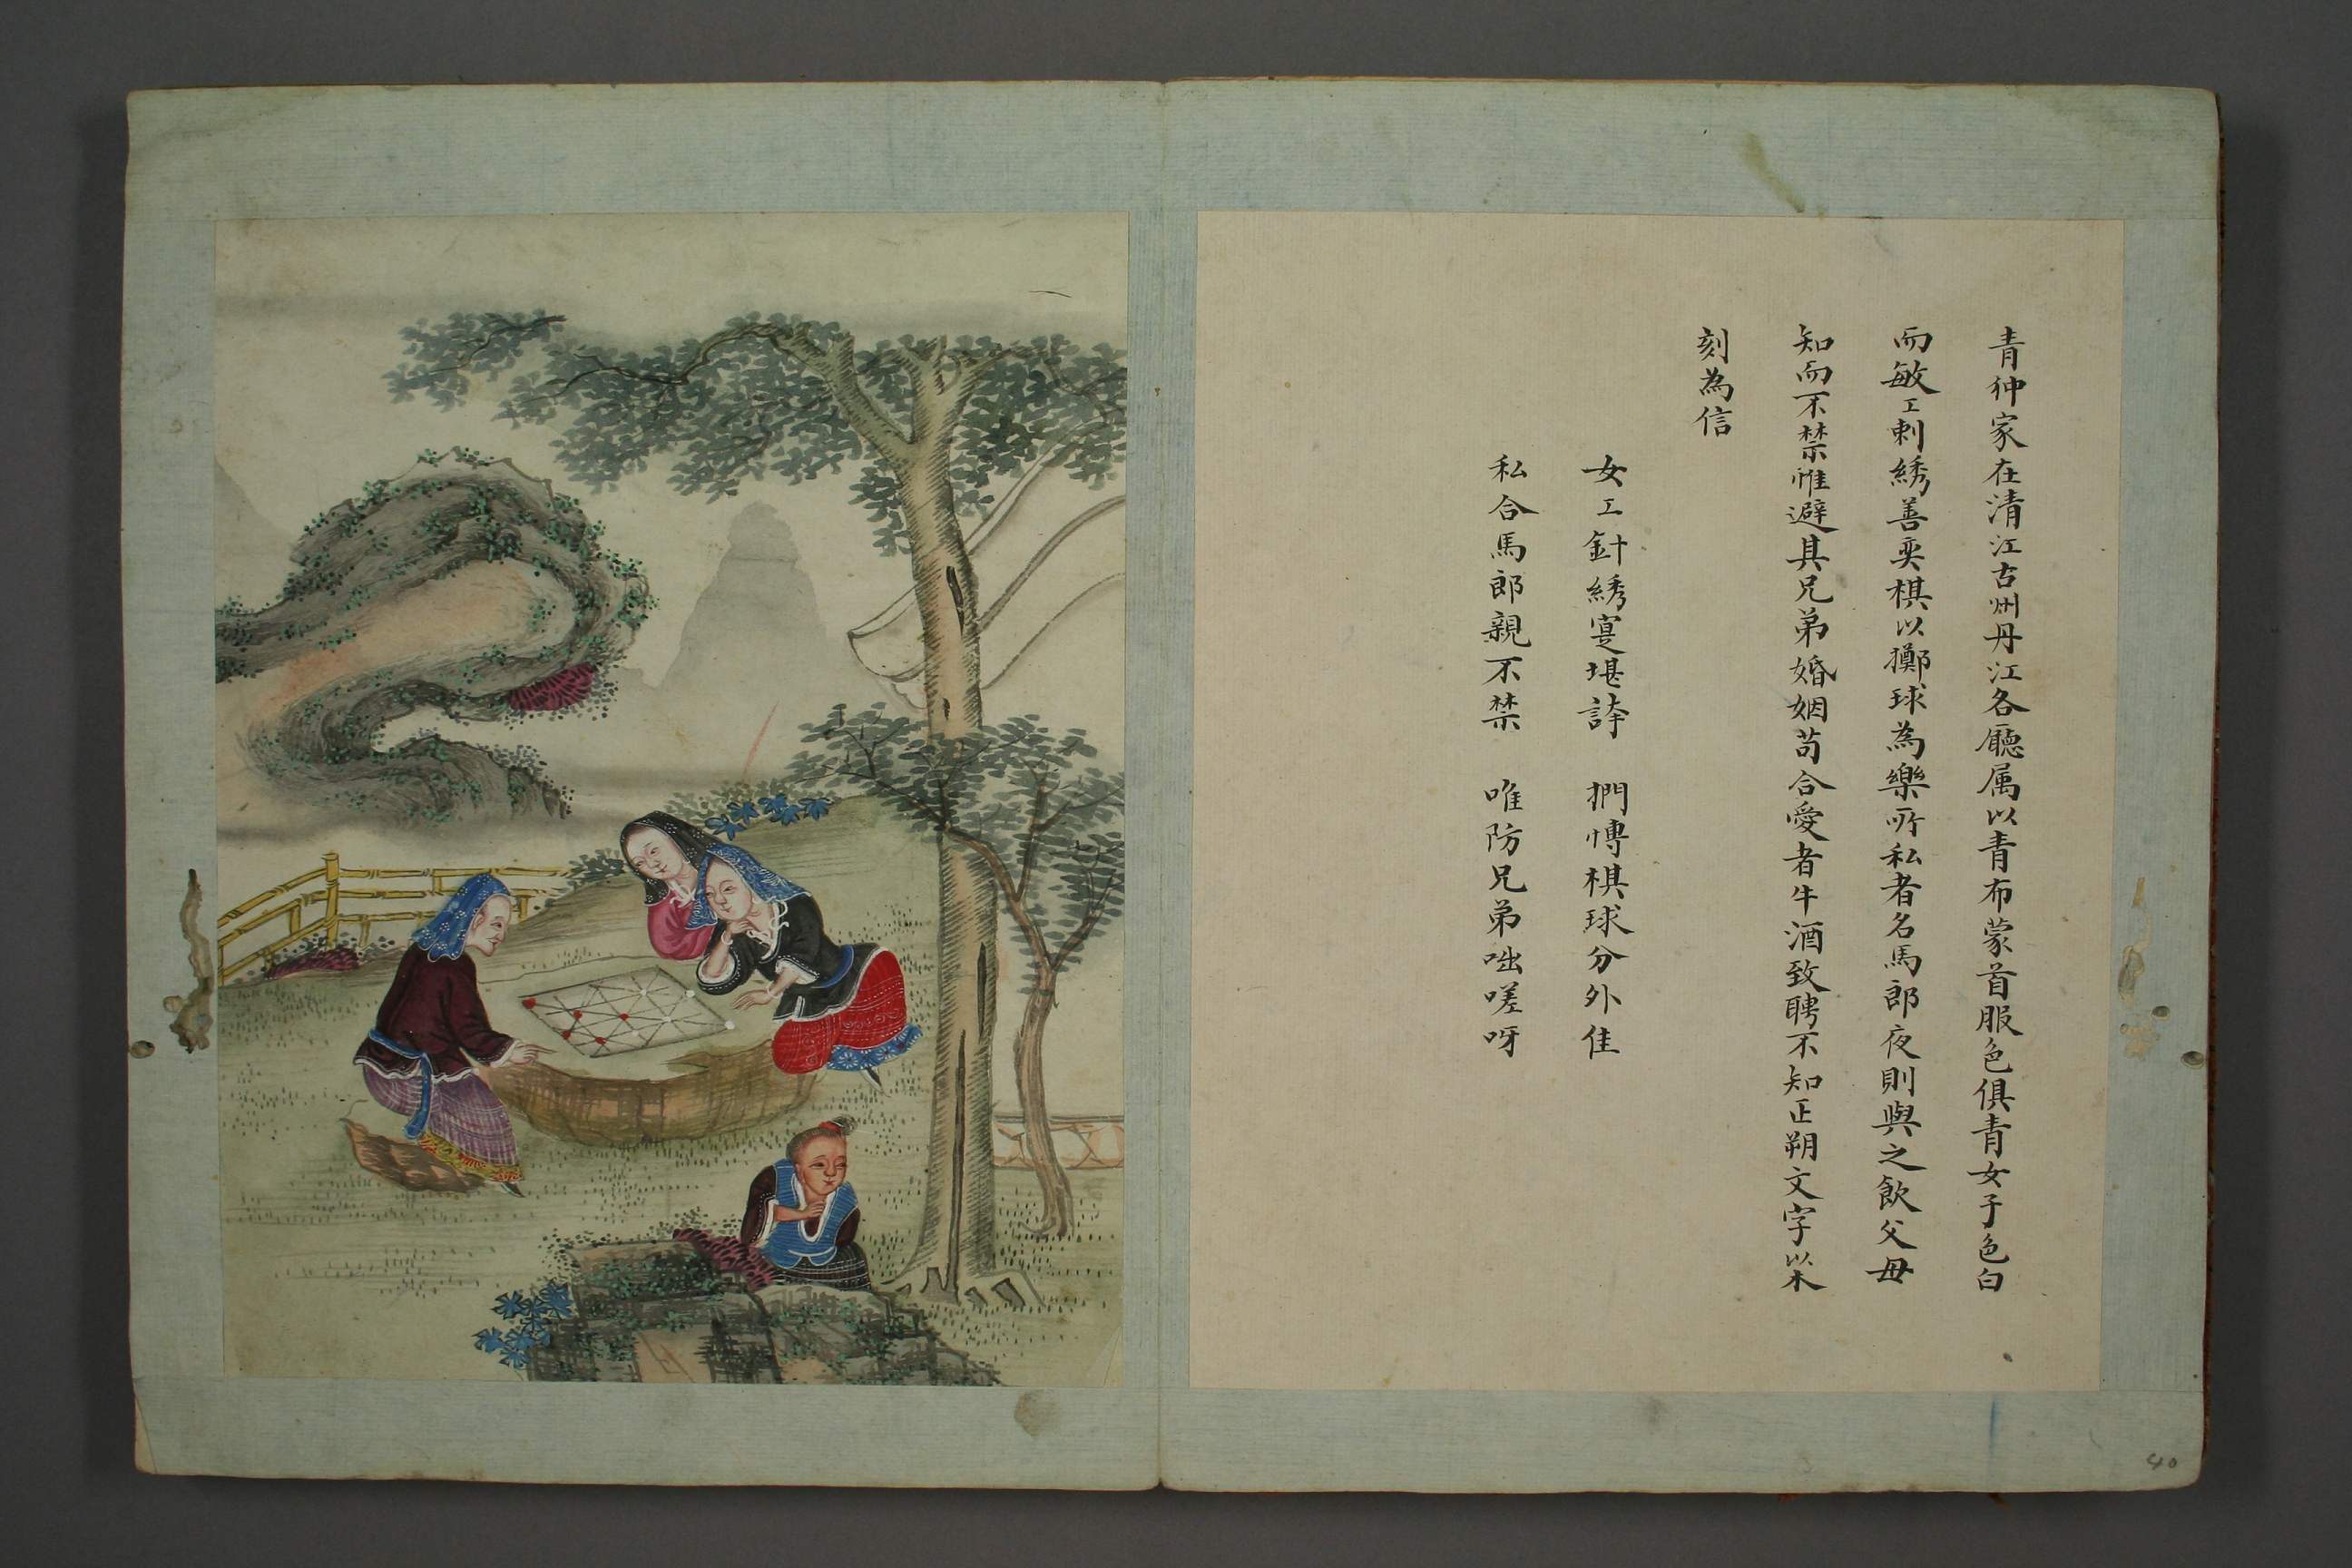 青狆家在清江古州丹江各廳属以青布蒙首服色俱青女子色白
而敏工刺綉善奕棋以擲球為樂所私者名馬郎夜則與之飲父母
知而不禁惟避其兄弟婚姻苟合愛者牛酒致聘不知正朔文字以木
刻為信
女工針綉寔堪誇 捫愽棋球分外佳
私合馬郎親不禁 唯防兄弟咄嗟呀
40